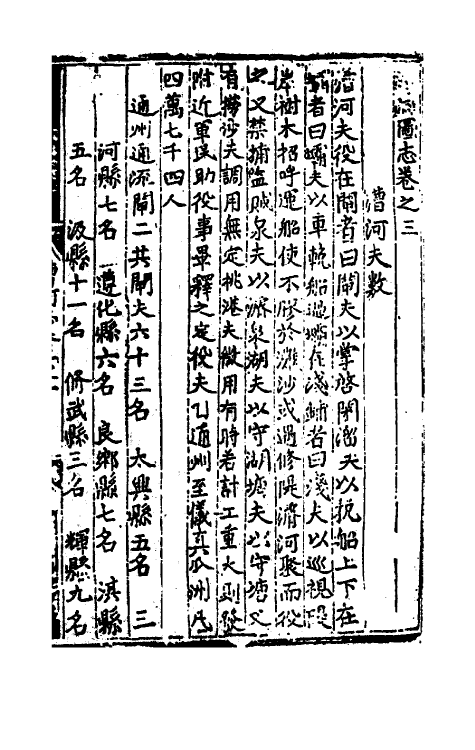 圖志卷之三
漕河夫數
漕河夫役在閘者曰閘夫以掌啓閉溜夫以挽船上下在
壩者曰壩夫以車輓船過壩在淺鋪者曰淺夫以巡視隄
岸樹木招呼運船使不膠於灘沙或遇修隄濬河聚而役
之又禁捕盜賊泉夫以濬泉湖夫以守湖塘夫以守塘又
有撈沙夫調用無定挑港夫徵用有時若計工重大則發
附近軍民助役事畢釋之定役夫乙通州至儀真瓜洲凡
四萬七千四人
通州通流閘二共閘夫六十三名 大興縣五名 三
河縣七名 遵化縣六名 良鄉縣七名 淇縣
五名 汲縣十一名 修武縣三名 輝縣九名